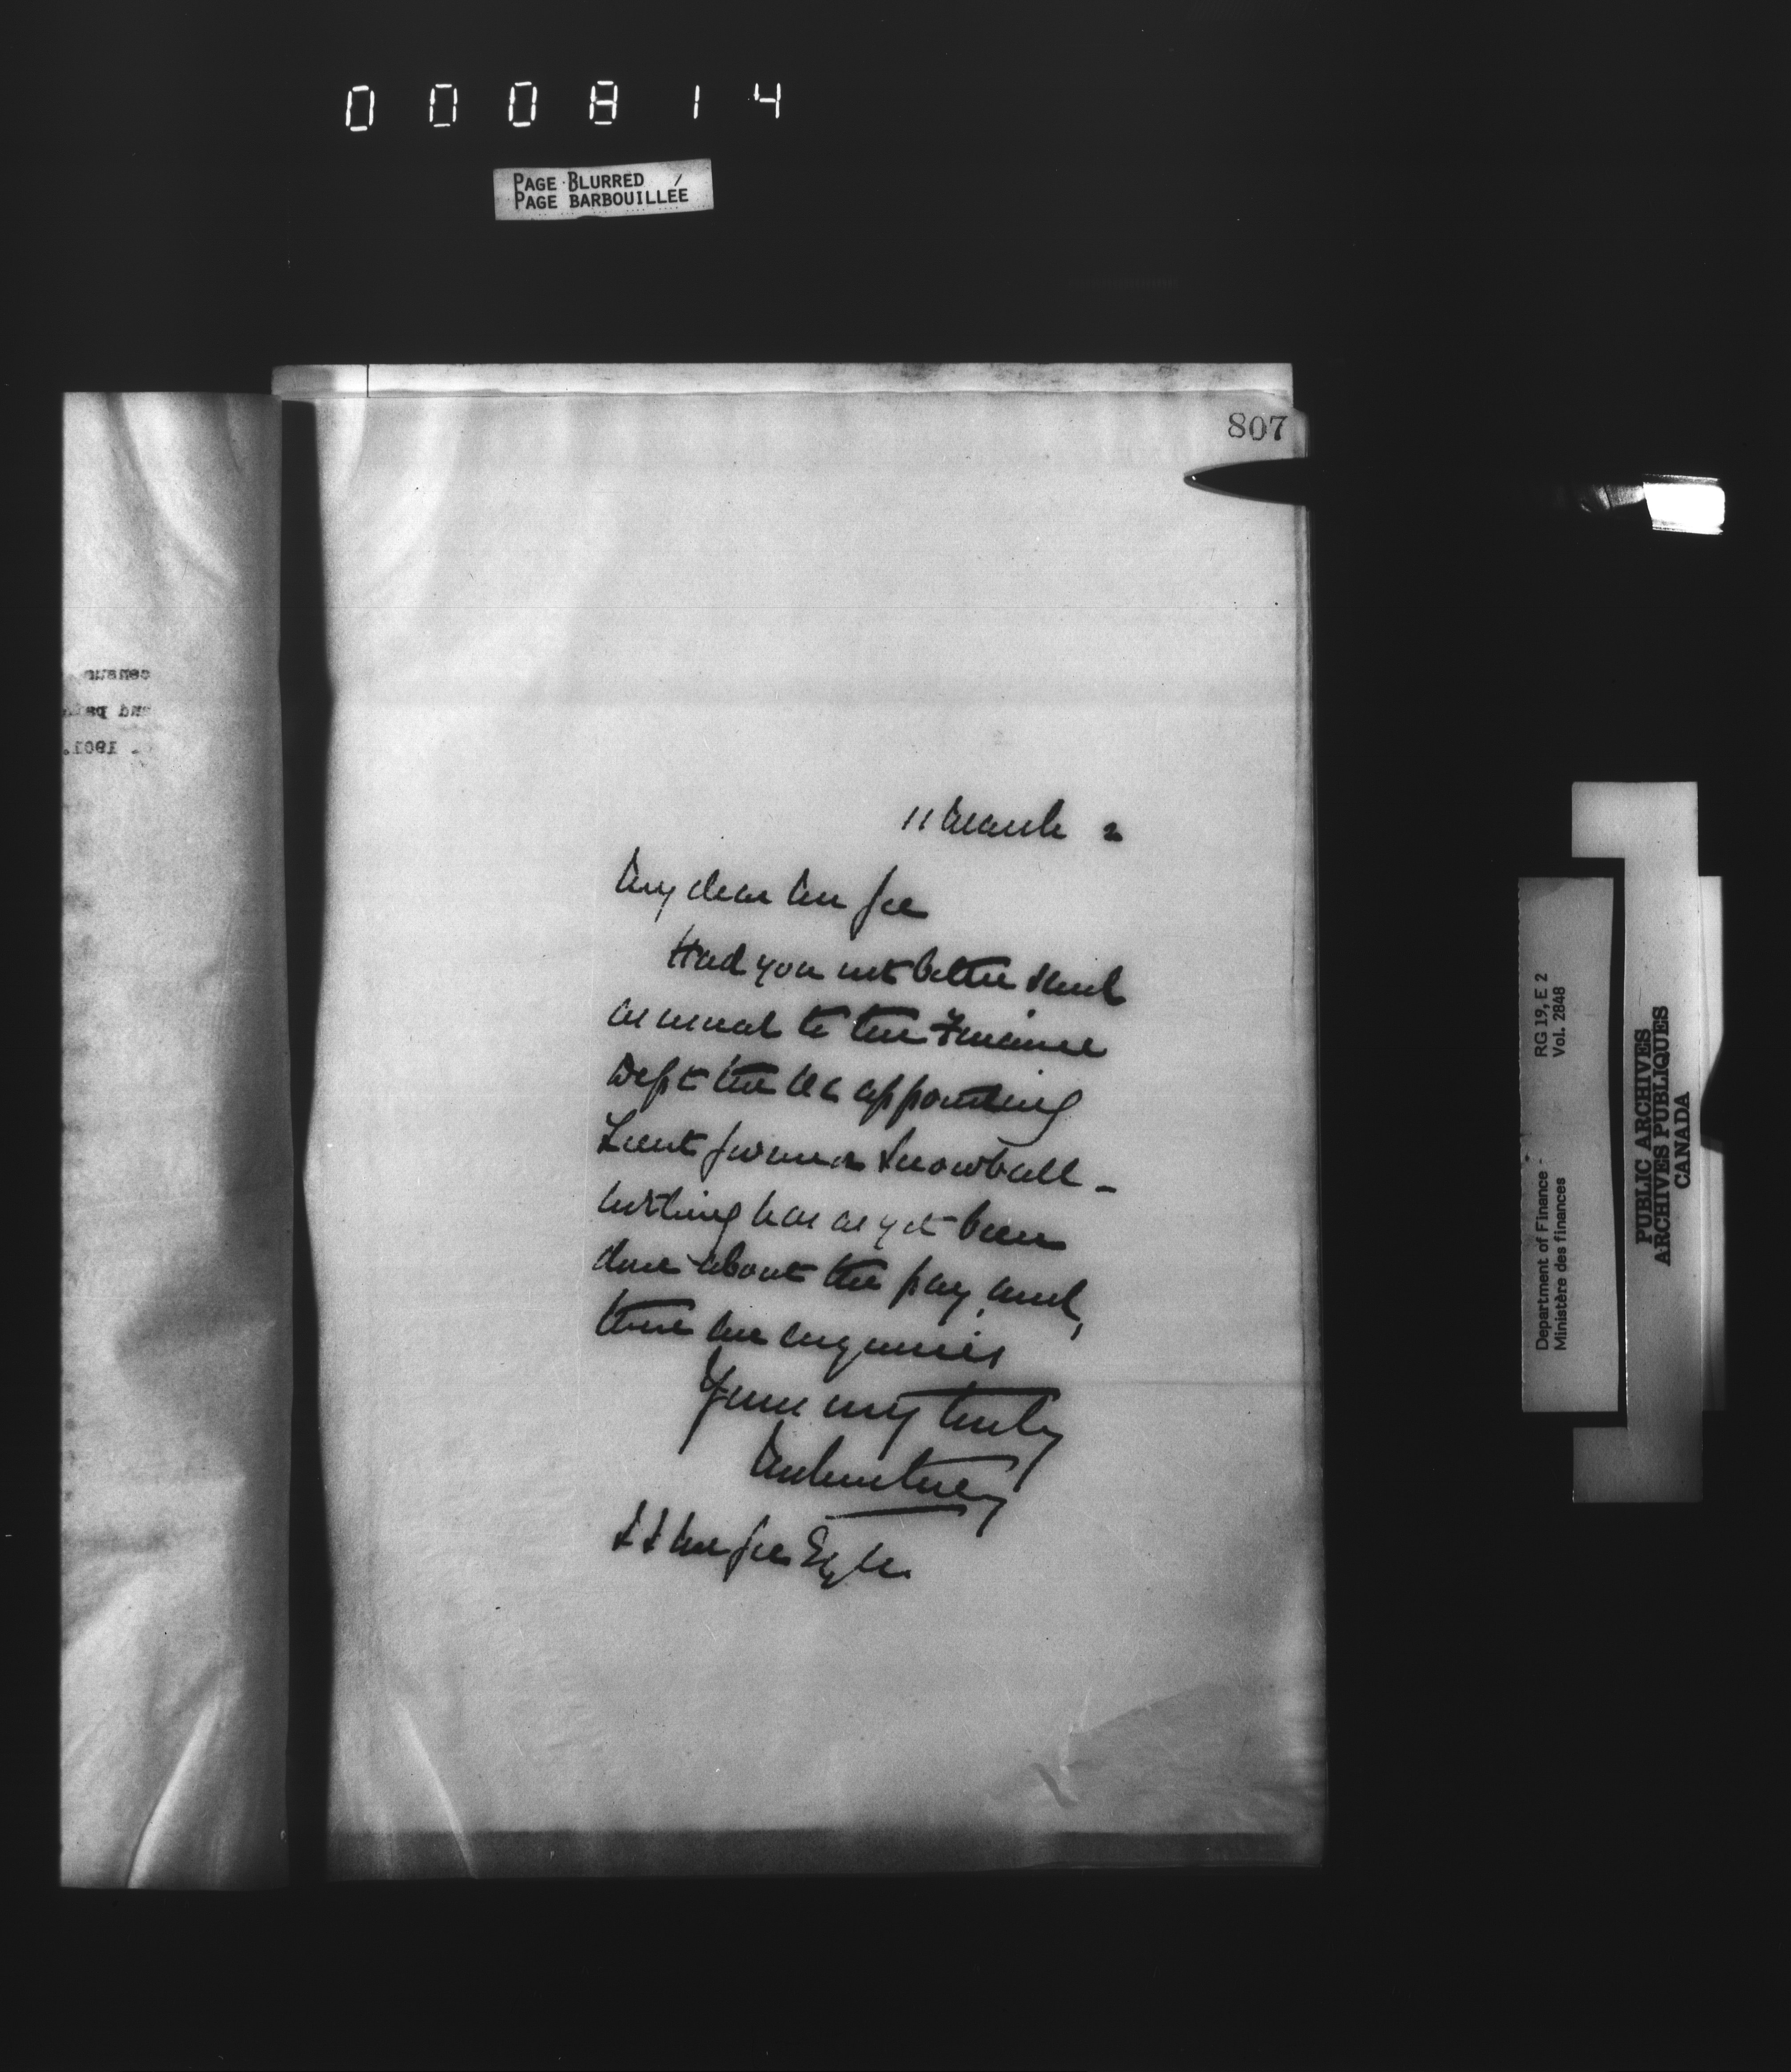 000814
PAGE BLURRED
PAGE BARBOUILLÉE
807
census
and
1901.
11 March 2
My dear McGee
Had you not better send
as usual to the Finance
Dept the OC appointing
Lieut Governor Snowball -
nothing has as yet been
done about the pay, and,
there are enquiries
Yours very truly
Courtney
J J McGee Esq
Department of Finance - RG 19, E 2
Ministère des finances Vol. 2848
PUBLIC ARCHIVES
ARCHIVES PUBLIQUES
CANADA